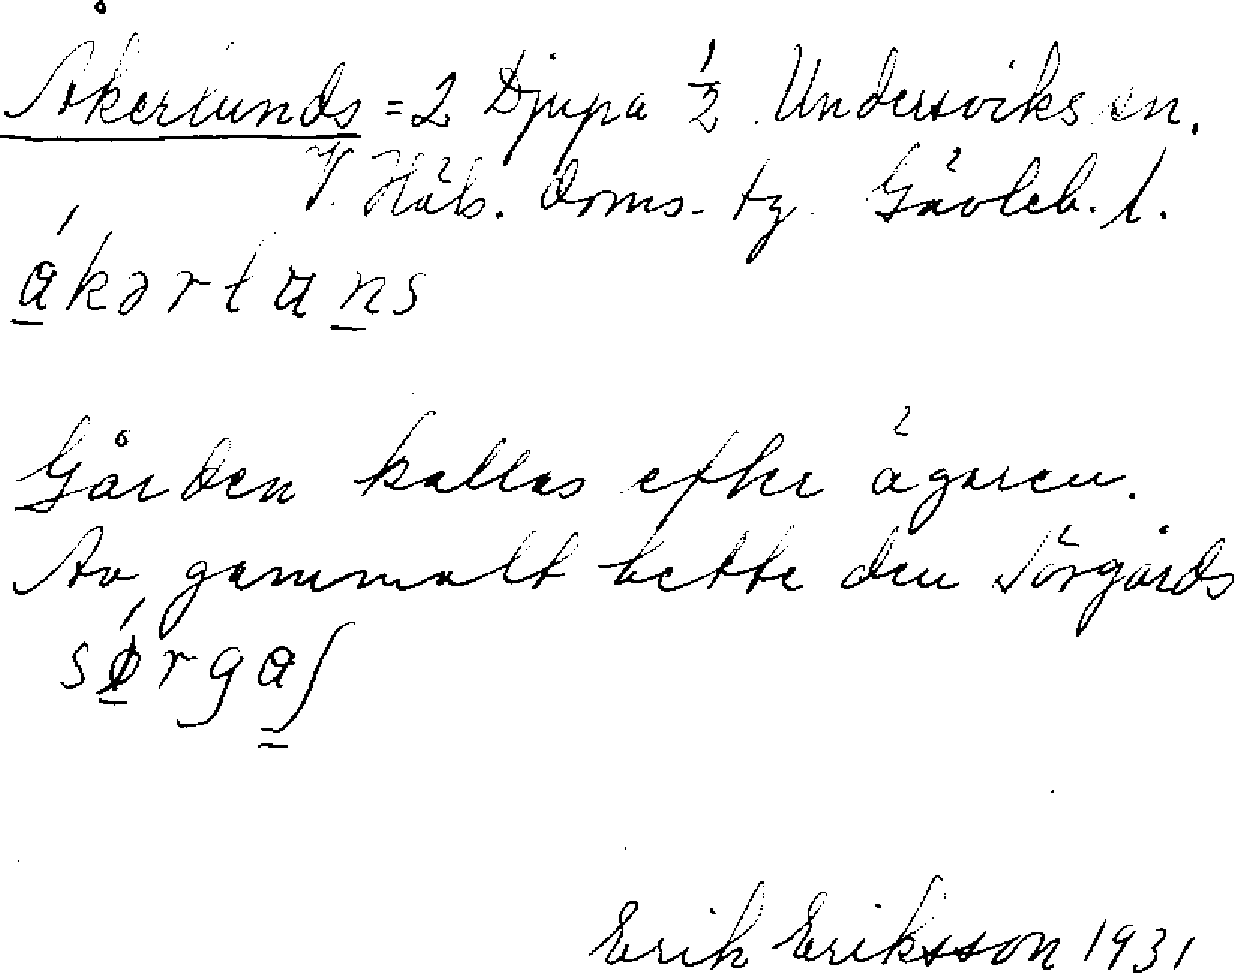 Åkerlunds = 2 Djupa ½ Undersviks sn.
V. Häls. doms. tg. Gävleb. l.
ákərluns
Gården kallas efter ägaren.
Av gammalt hette den Sörgårds
sǿrgaʃ
Erik Eriksson 1931